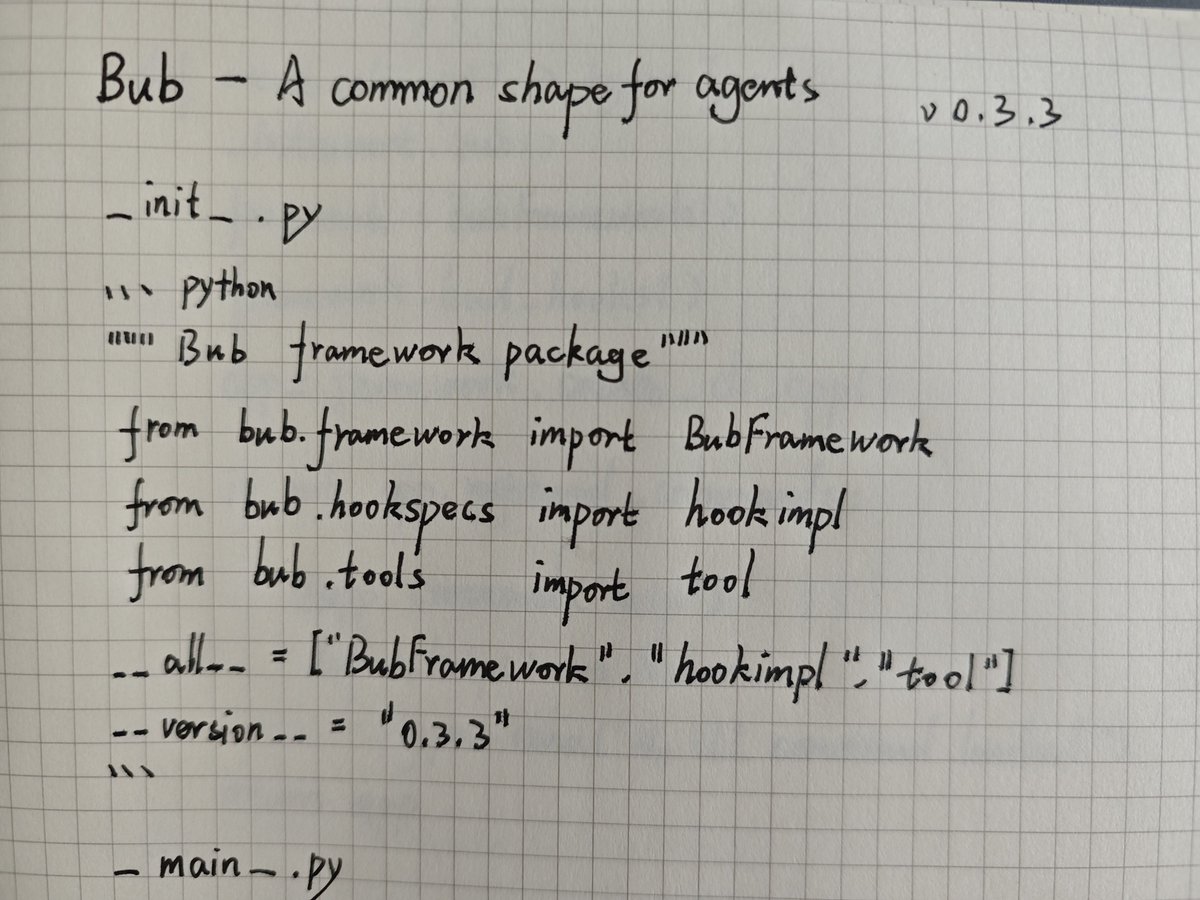 Bub - A common shape for agents v0.3.3
_init_.py
``` python
""" Bub framework package """
from bub.framework import BubFramework
from bub.hookspecs import hookimpl
from bub.tools import tool
__all__ = ["BubFramework", "hookimpl", "tool"]
__version__ = "0.3.3"
```
_main_.py